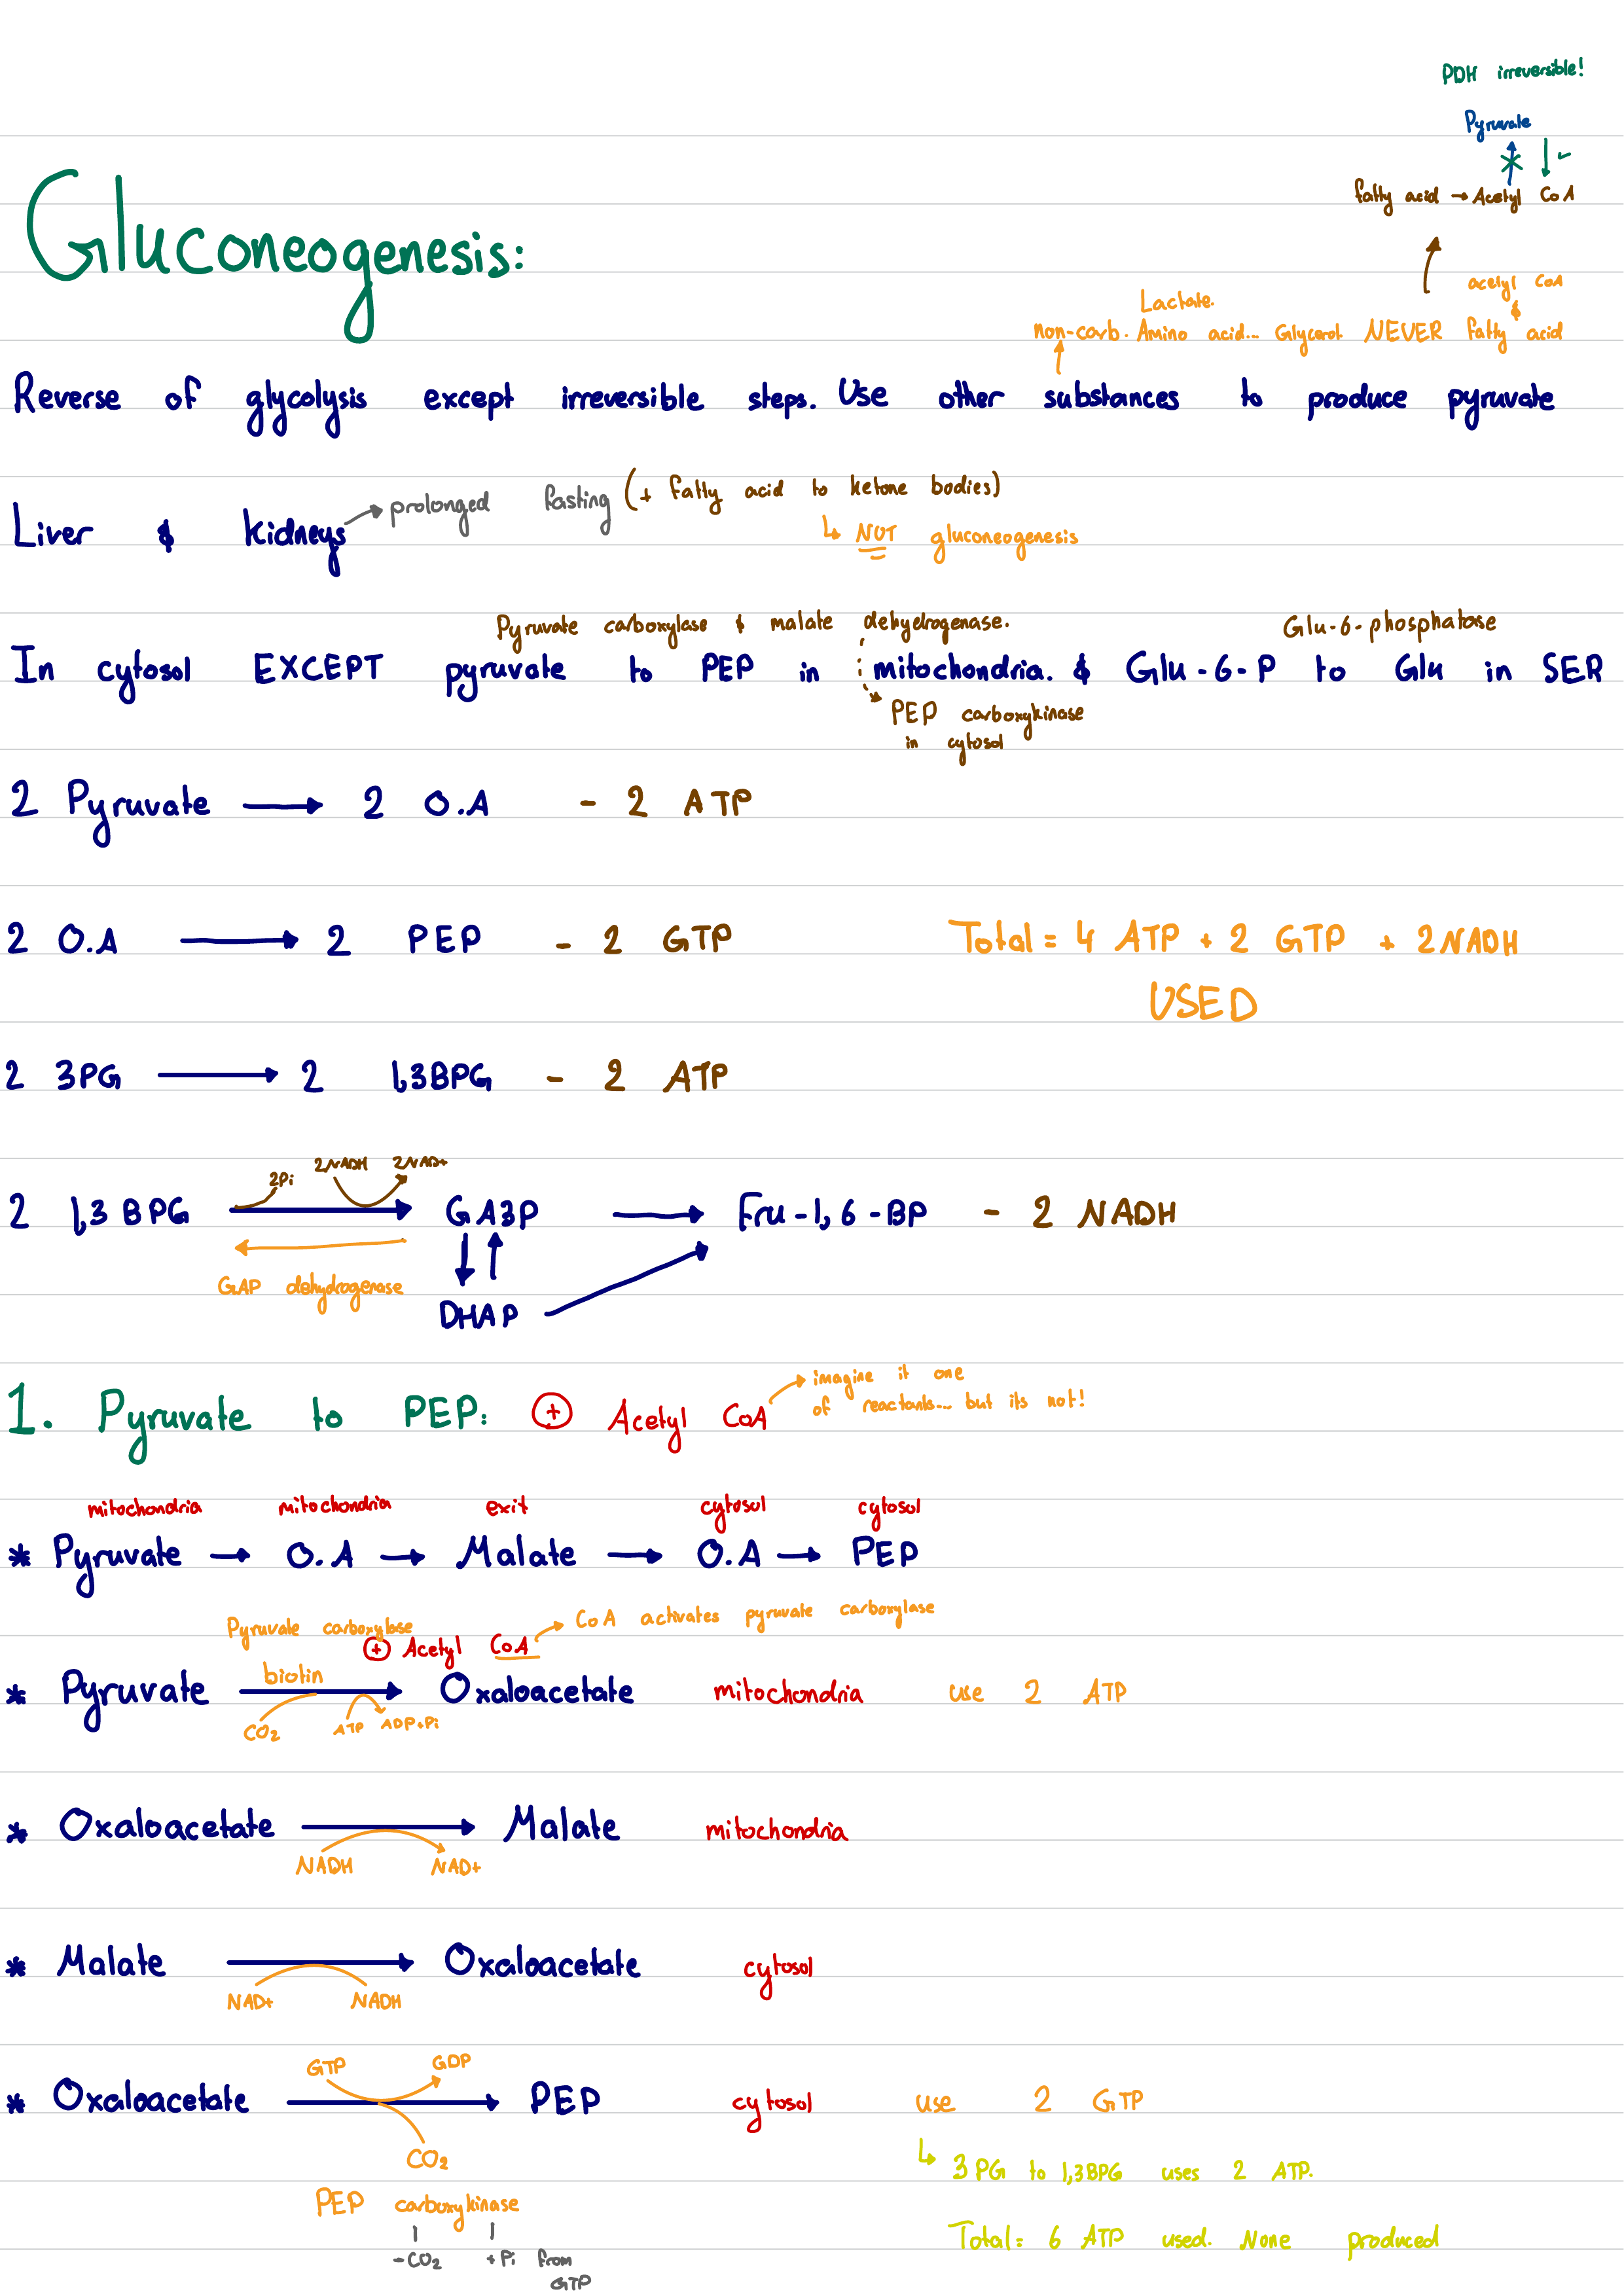 PDH irreversible!
Pyruvate
fatty acid → Acetyl CoA
Gluconeogenesis:
acetyl CoA
Lactate.
non-carb. Amino acid... Glycerol NEVER fatty acid
Reverse of glycolysis except irreversible steps. Use other substances to produce pyruvate
Liver & kidneys → prolonged fasting (+ fatty acid to ketone bodies)
↳ NOT gluconeogenesis
Pyruvate carboxylase & malate dehydrogenase. Glu-6-phosphatase
In cytosol EXCEPT pyruvate to PEP in mitochondria. & Glu-6-P to Glu in SER
PEP carboxykinase
in cytosol
2 Pyruvate → 2 O.A - 2 ATP
2 O.A → 2 PEP - 2 GTP Total = 4 ATP + 2 GTP + 2NADH
USED
2 3PG → 2 1,3BPG - 2 ATP
2Pi 2NADH 2NAD+
2 1,3 BPG → GA3P → Fru-1,6-BP - 2 NADH
GAP dehydrogenase
DHAP
1. Pyruvate to PEP: + Acetyl CoA → imagine it one
of reactants... but its not!
mitochondria mitochondria exit cytosol cytosol
* Pyruvate → O.A → Malate → O.A → PEP
Pyruvate carboxylase
+ Acetyl CoA → CoA activates pyruvate carboxylase
biotin
* Pyruvate → Oxaloacetate mitochondria use 2 ATP
CO2 ATP ADP+Pi
* Oxaloacetate → Malate mitochondria
NADH NAD+
* Malate → Oxaloacetate cytosol
NAD+ NADH
GTP GDP
* Oxaloacetate → PEP cytosol use 2 GTP
CO2
↳ 3PG to 1,3BPG uses 2 ATP.
PEP carboxykinase
Total = 6 ATP used. None produced
-CO2 +Pi from
GTP